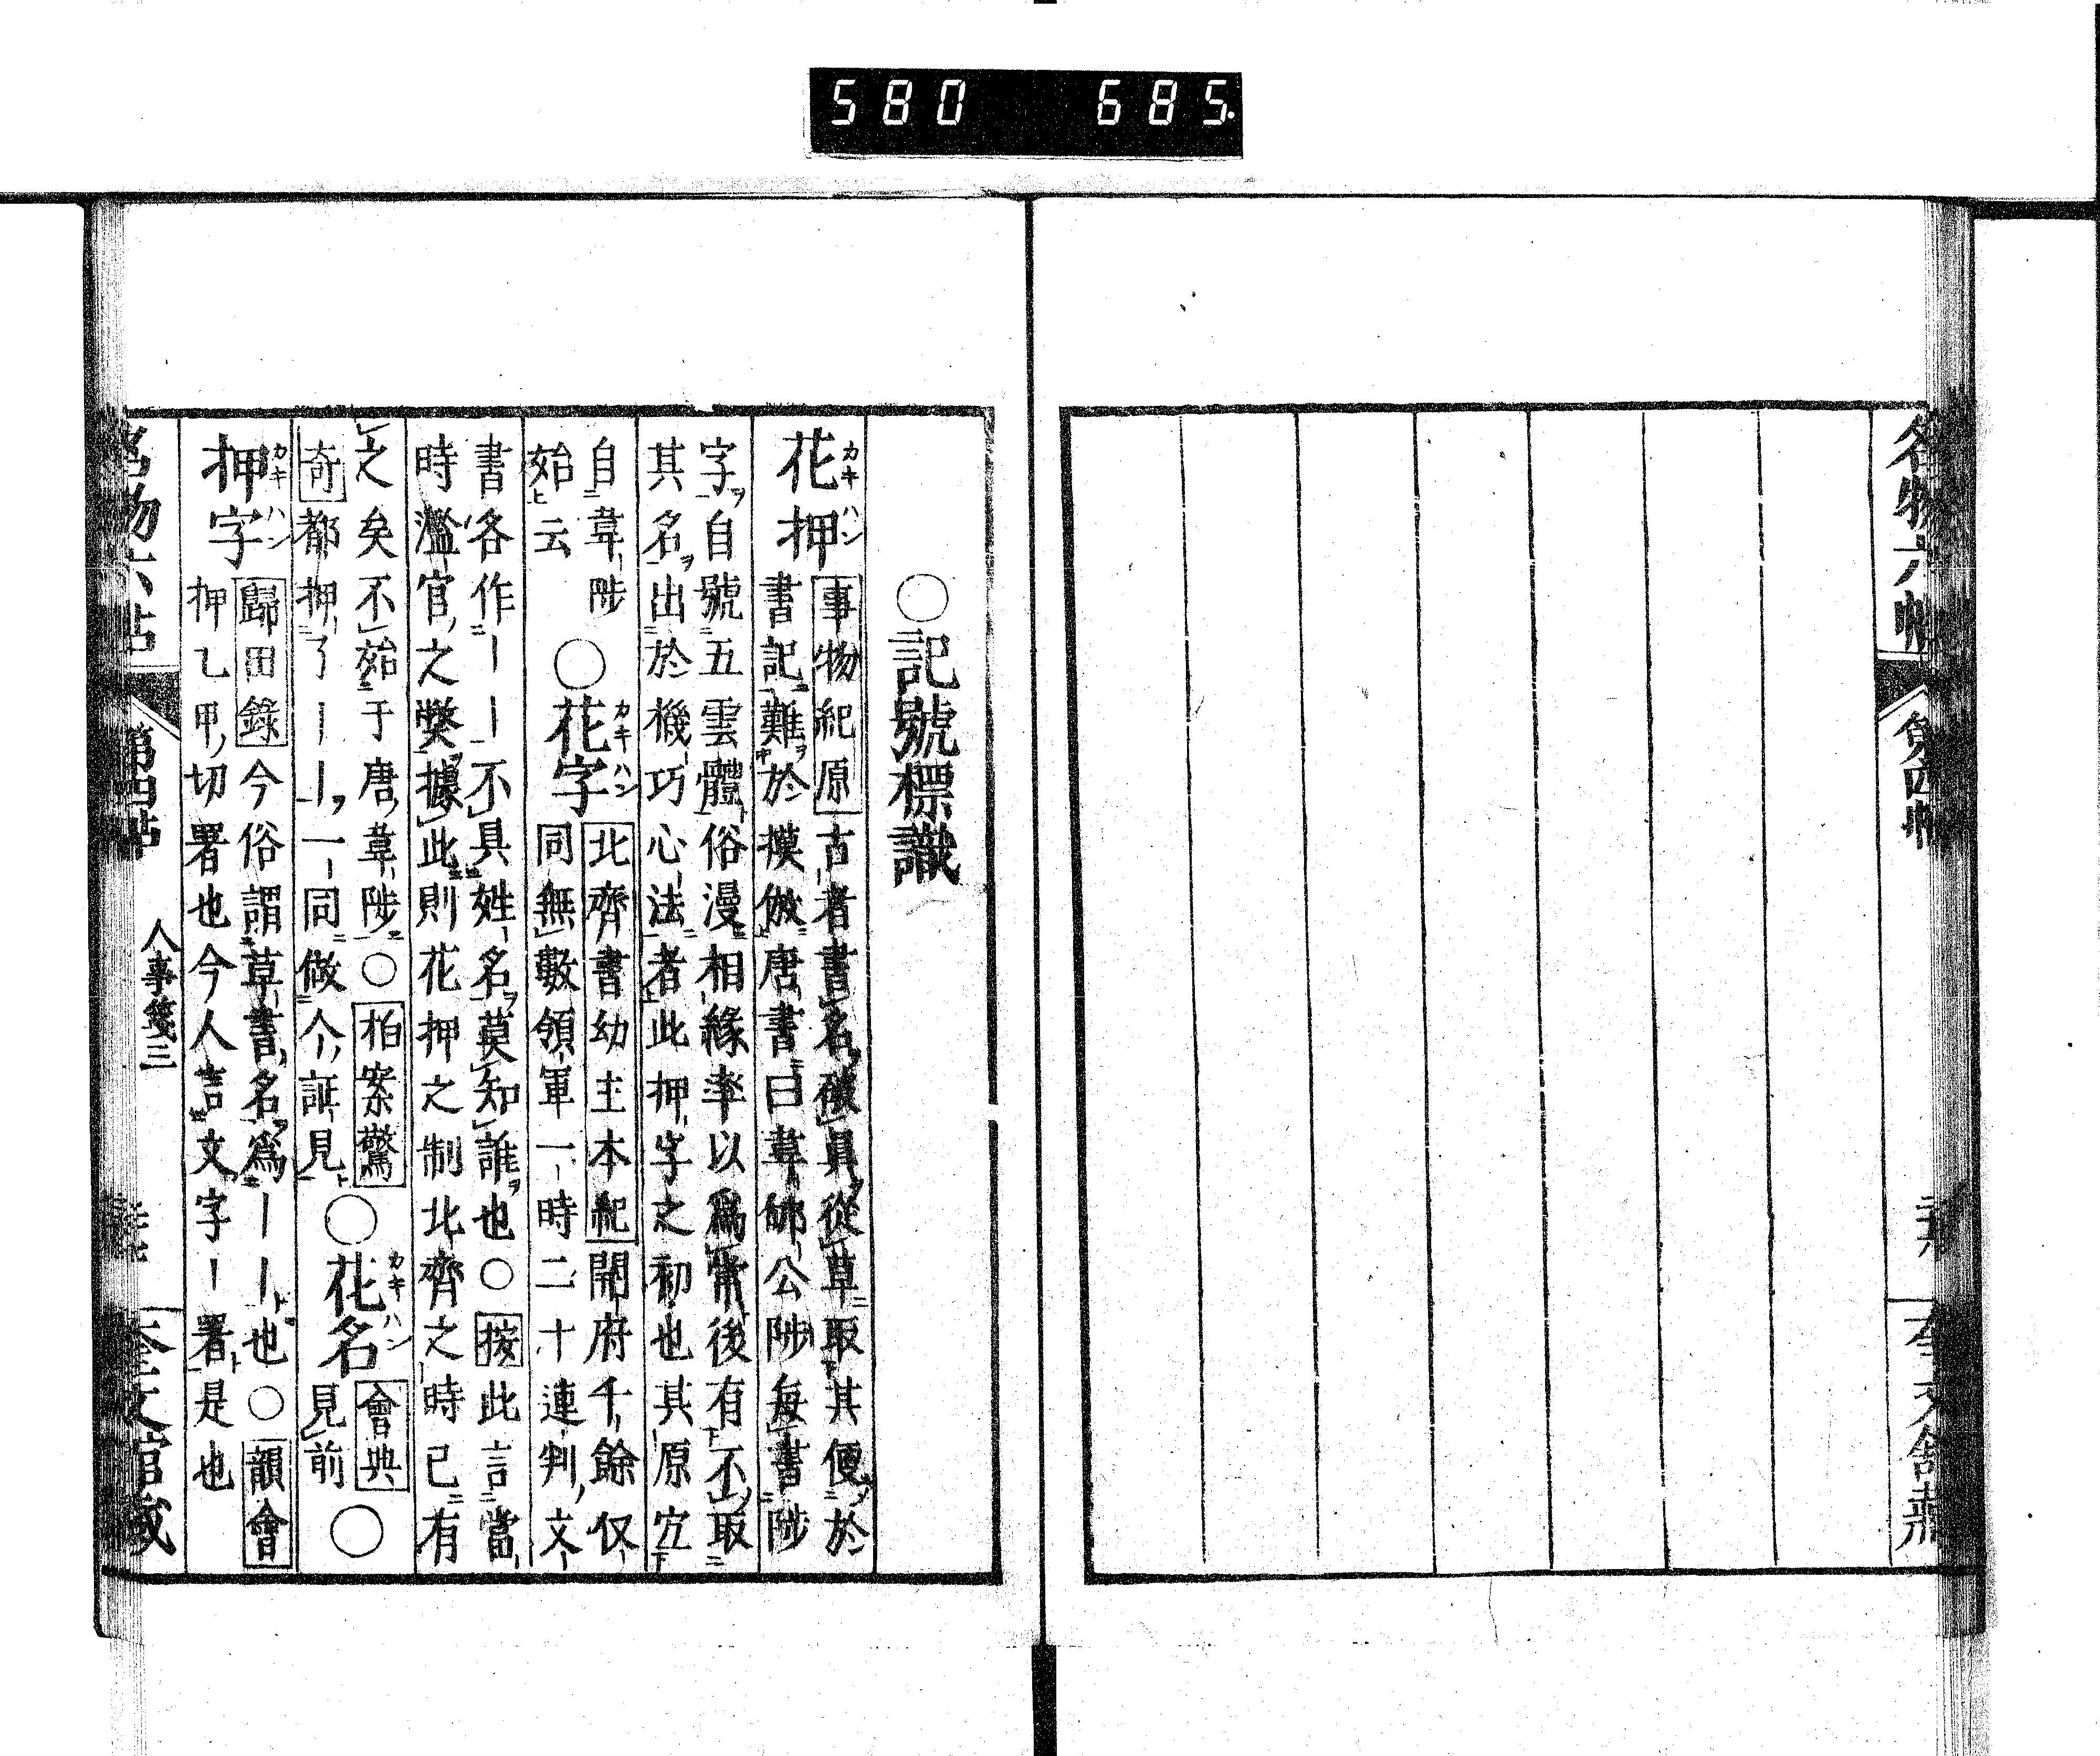 580 685.
名物六帖
第四帖
〇記號標識
花押 カキハン
事物紀原古者書名破眞從草取其便於
書記難於摸倣唐書曰韋郇公陟每書陟
字自號五雲體俗漫相緣率以爲常後有不取
其名出於機巧心法者此押字之初也其原宜
自韋陟
始云
〇花字 カキハン
北齊書幼主本紀開府千餘仪
同無數領軍一時二十連判文
書各作丨丨不具姓名莫知誰也〇按此言當
時濫官之獘據此則花押之制北齊之時已有
之矣不始于唐韋陟〇拍案驚
奇都押了丨丨一同做个証見
〇花名 カキハン
會典
見前
〇
押字 カキハン
歸田錄今俗謂草書名爲丨丨也〇韻會
押乙甲切署也今人言文字丨署是也
名物六帖
第四帖
人事箋三
奎文館藏